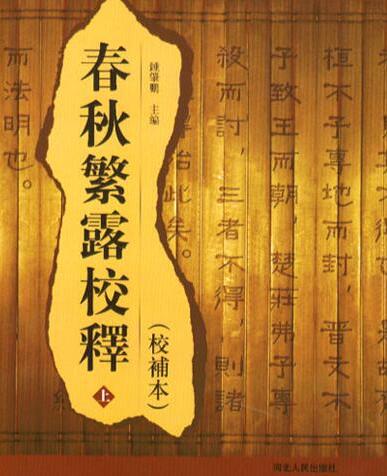 桓不予專地而封，晉文不
子致王而朝，楚莊弗予專
殺而討，三者不得，則諸
始此矣。
而法明也。
鍾肇鵬 主編
春秋繁露校釋
上
(校補本)
河北人民出版社